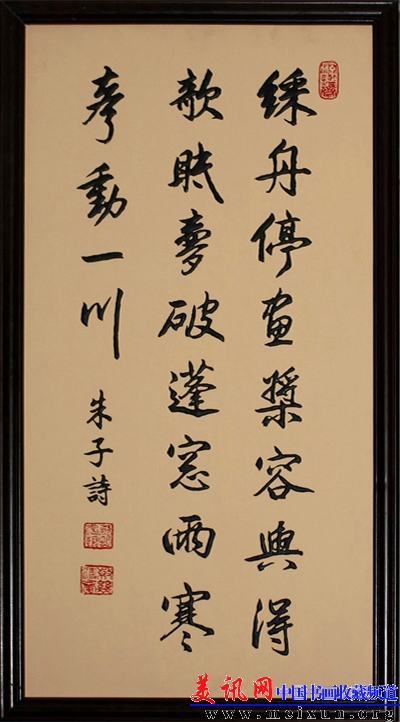 綵舟停畫槳容與得
欹眠夢破蓬窓雨寒
聲動一川
朱子詩
美讯网 中国书画收藏频道
www.meixun.org